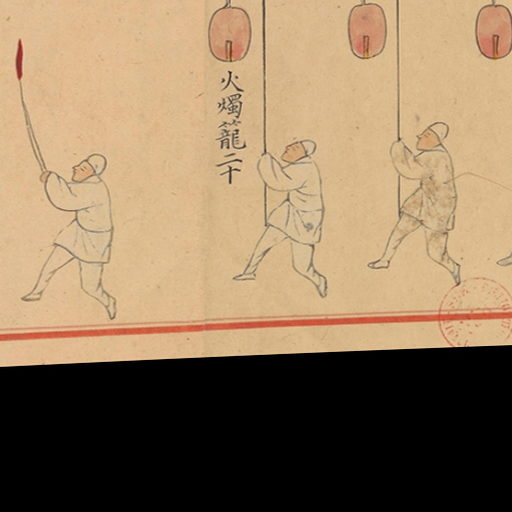 火燭籠二十